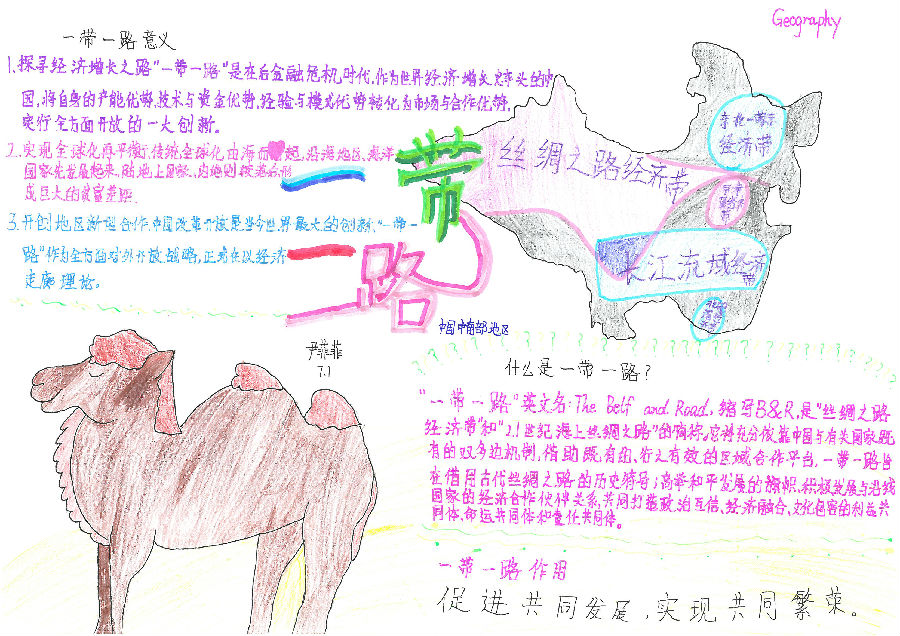 Geography
一带一路意义
1.探寻经济增长之路"一带一路"是在后金融危机时代,作为世界经济增长火车头的中
国,将自身的产能优势,技术与资金优势,经验与模式优势转化为市场与合作优势,
实行全方面开放的一大创新。
2.实现全球化再平衡,传统全球化由海而起,沿海地区,海洋
国家先发展起来,陆地上国家、内地则较落后形
成巨大的贫富差距。
3.开创地区新型合作.中国改革开放是当今世界最大的创新,"一带一
路"作为全方面对外开放战略,正在以经济
走廊理论。
一带
一路
丝绸之路经济带
经济带
长江流域经济带
中国中南部地区
尹菲菲
7.1
什么是一带一路?
"一带一路"英文名:The Belf and Road,缩写B&R,是"丝绸之路
经济带"和"21世纪海上丝绸之路"的简称。它将充分依靠中国与有关国家既
有的双多边机制,借助既有组、行之有效的区域合作平台,一带一路旨
在借用古代丝绸之路的历史符号;高举和平发展的旗帜,积极发展与沿线
国家的经济合作伙伴关系,共同打造政治互信、经济融合、文化包容的利益共
同体、命运共同体和责任共同体。
一带一路作用
促进共同发展,实现共同繁荣。